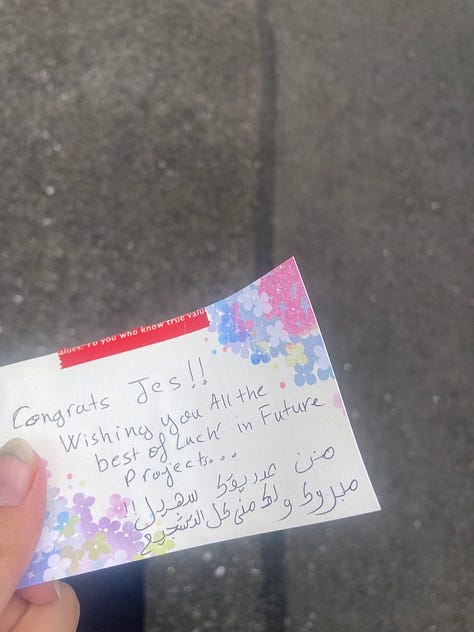 alues. To you who know true valu
Congrats Jes!!
Wishing you All the
best of Luck in Future
Projects...
من صديقك سهيل!
مبروك ولك مني كل التشجيع